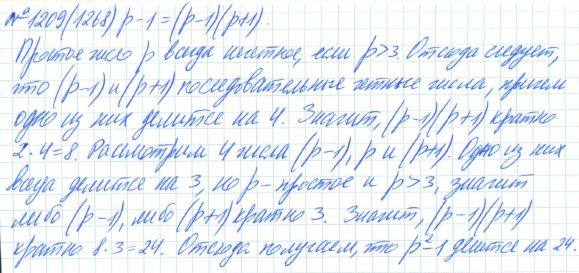 № 1209(1268) p-1=(p-1)(p+1).
Простое число p всегда нечетное, если p>3. Отсюда следует,
что (p-1) и (p+1) последовательные четные числа, причем
одно из них делится на 4. Значит, (p-1)(p+1) кратно
2·4=8. Рассмотрим 4 числа (p-1), p и (p+1). Одно из них
всегда делится на 3, но p- простое и p>3, значит
либо (p-1), либо (p+1) кратно 3. Значит, (p-1)(p+1)
кратно 8·3=24. Отсюда получаем, что p²-1 делится на 24.